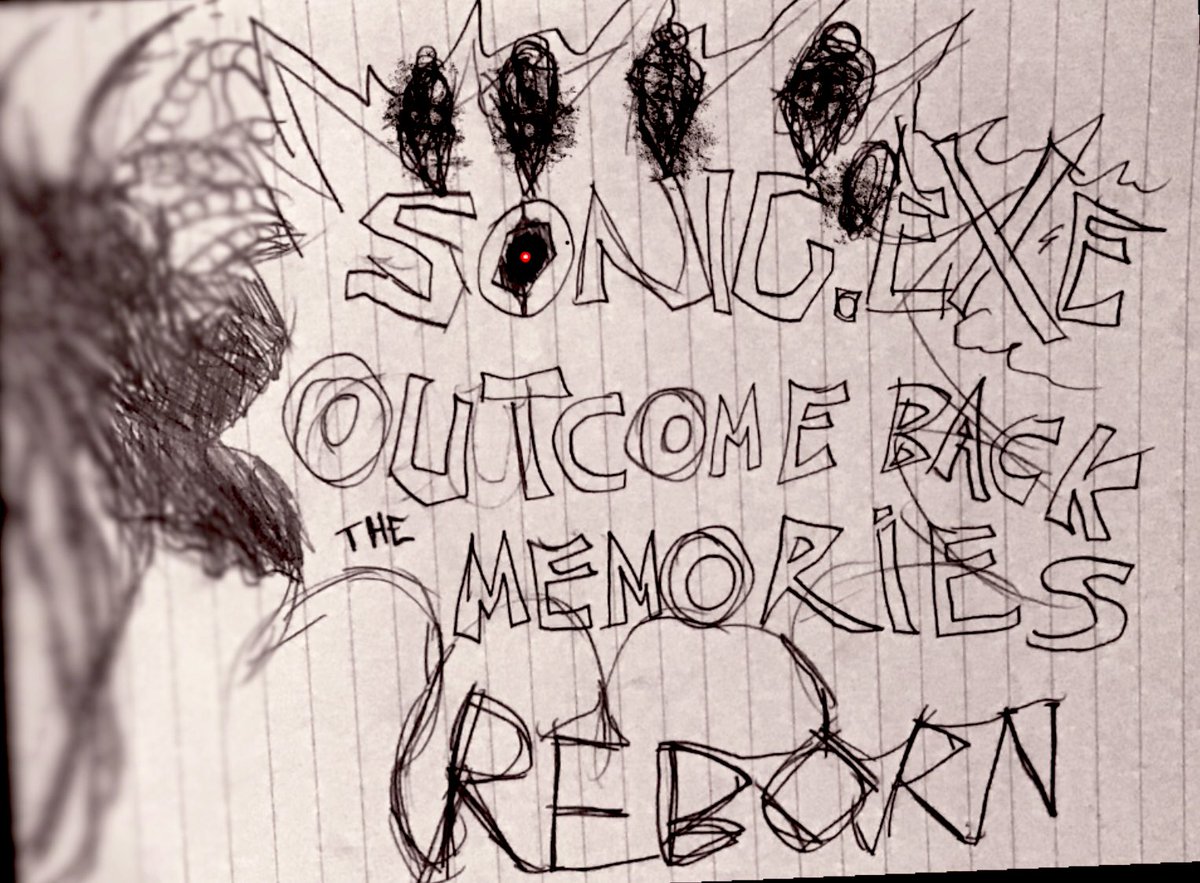 SONIC.EXE
OUTCOME BACK
THE MEMORIES
REBORN